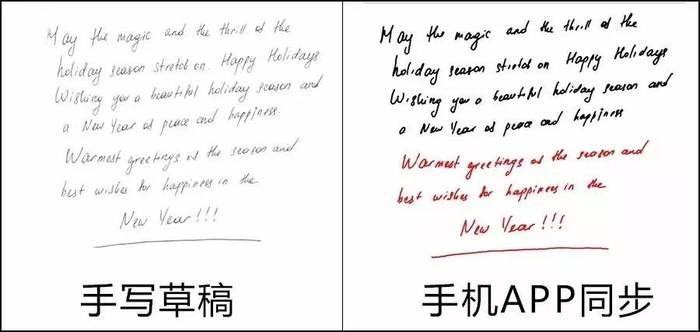 May the magic and the thrill of the
holiday season stretch on. Happy Holidays
Wishing you a beautiful holiday season and
a New Year of peace and happiness.
Warmest greetings of the season and
best wishes for happiness in the
New Year!!!
手写草稿
May the magic and the thrill of the
holiday season stretch on Happy Holidays
Wishing you a beautiful holiday season and
a New Year of peace and happiness
Warmest greetings of the season and
best wishes for happiness in the
New Year!!!
手机APP同步